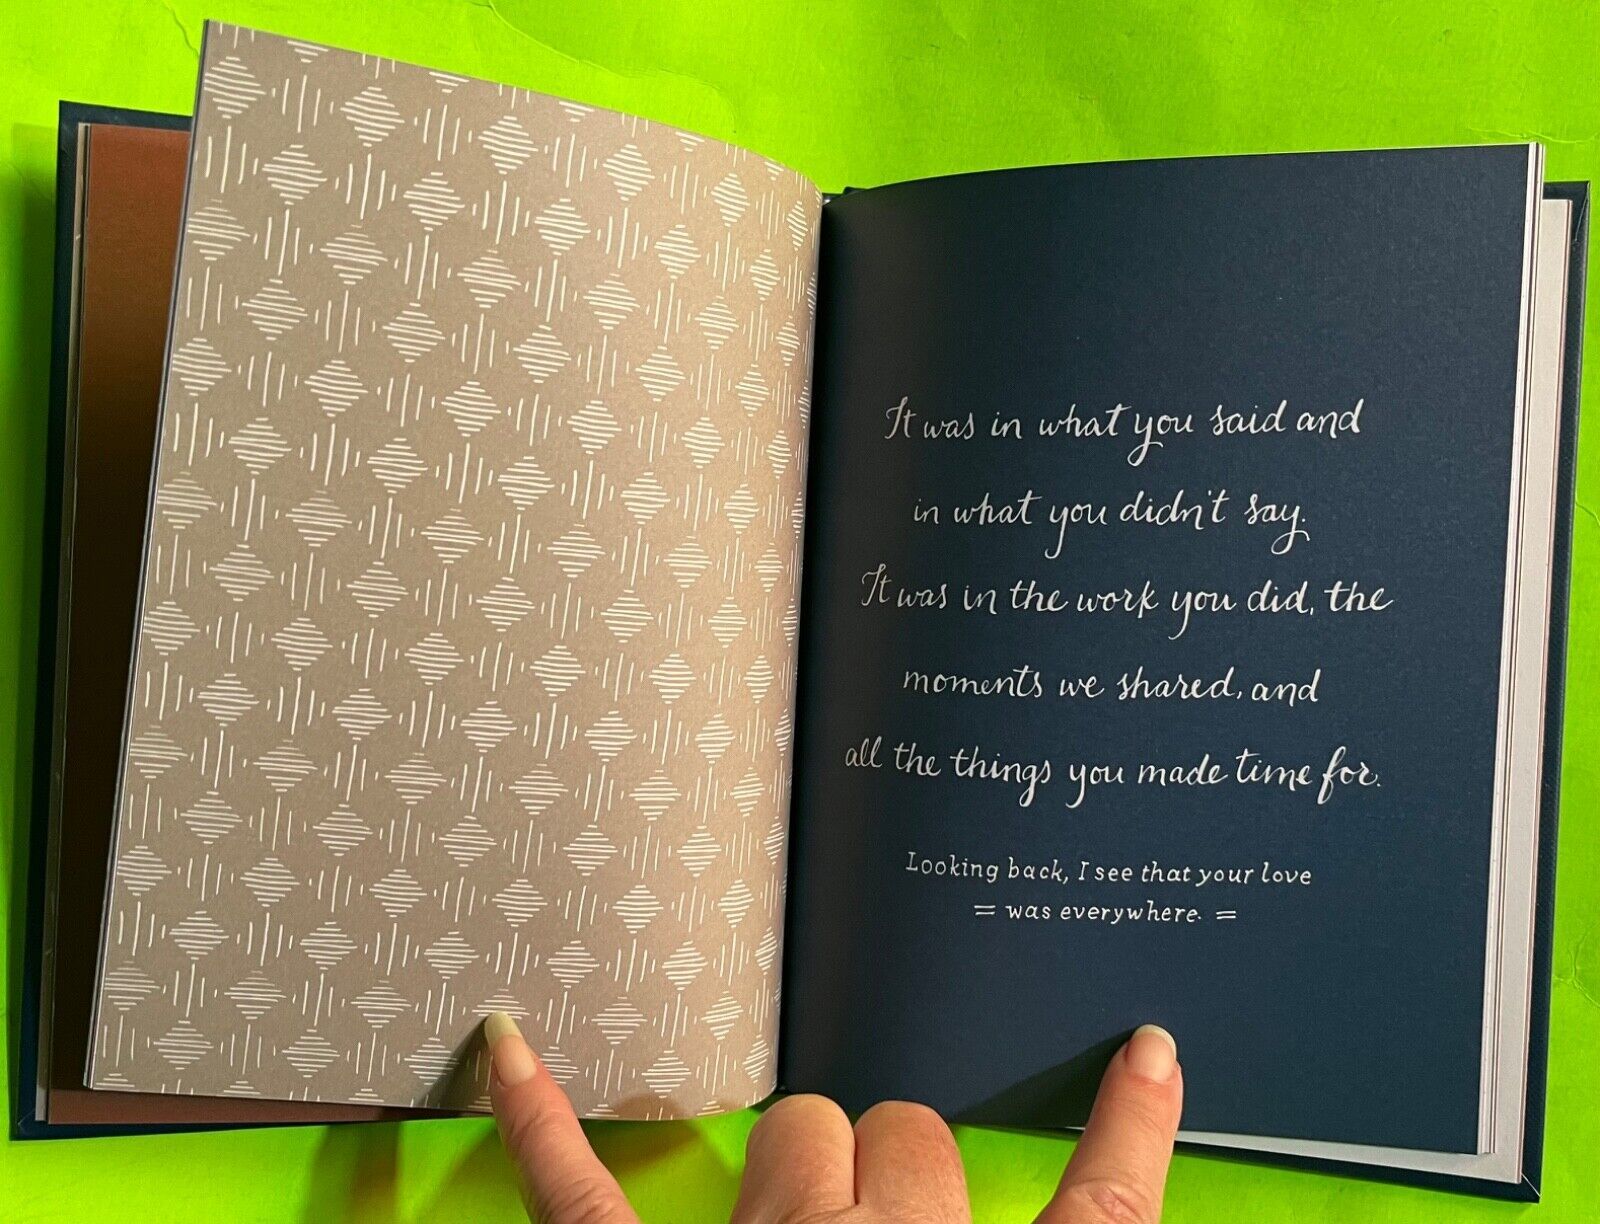 It was in what you said and
in what you didn't say.
It was in the work you did, the
moments we shared, and
all the things you made time for.
Looking back, I see that your love
= was everywhere. =